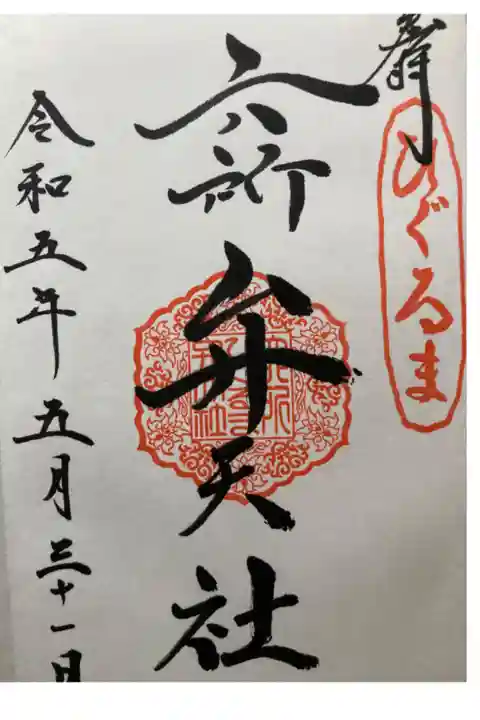 奉拝
ひぐるま
六所
弁天社
令和五年五月三十一日